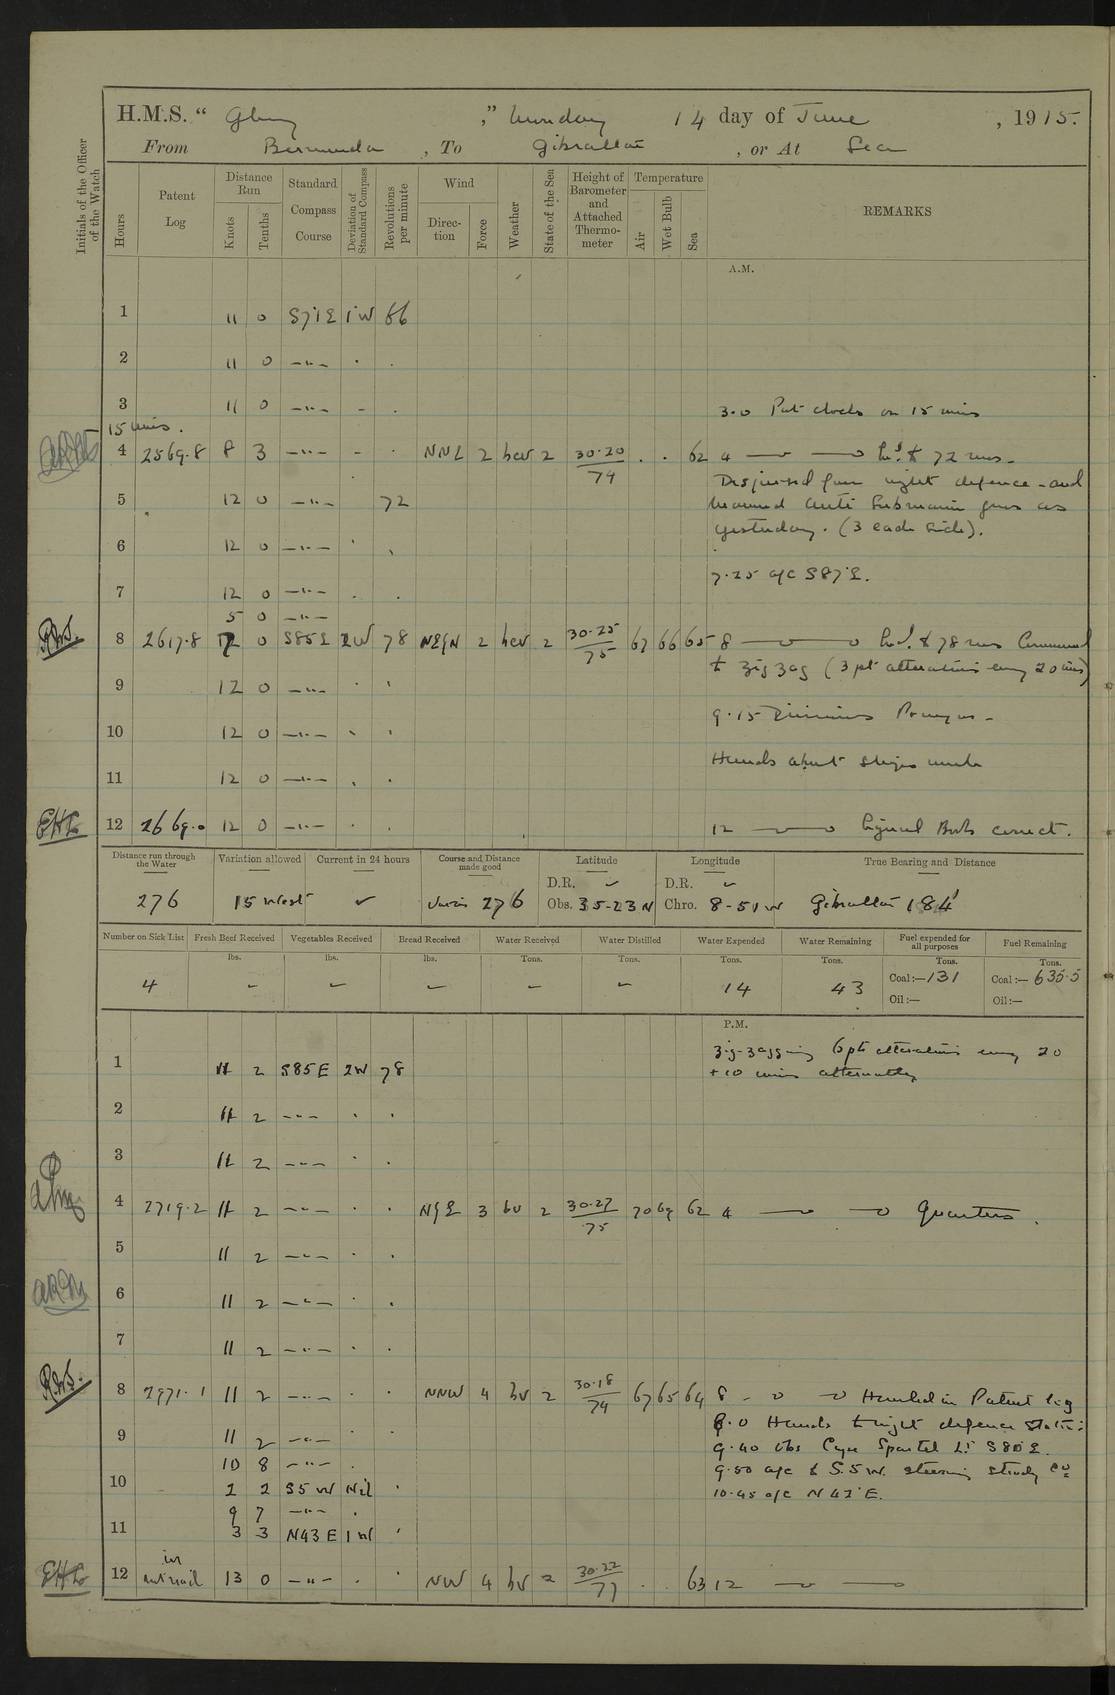 H.M.S. “ Glory ,” Monday 14 day of June , 1915.
From Bermuda , To Gibraltar , or At Sea
Initials of the Officer of the Watch
Hours
Patent Log
Distance Run
Knots
Tenths
Standard Compass Course
Deviation of Standard Compass
Revolutions per minute
Wind
Direction
Force
Weather
State of the Sea
Height of Barometer and Attached Thermometer
Temperature
Air
Wet Bulb
Sea
REMARKS
A.M.
1 11 0 S71E 1W 66
2 11 0 —"— . .
3 11 0 —"— - . 3.0 Put clocks on 15 mins
15 mins.
4 2569.8 8 3 —"— - . NNE 2 bcv 2 30.20/74 . . 62 4 Incd. to 72 revs.
Dispersed from night defence and
5 12 0 —"— 72 manned anti submarine guns as
yesterday. (3 each side).
6 12 0 —"— ' .
7.25 a/c S87°E.
7 12 0 —"— . .
5 0 —"—
8 2617.8 12 0 S85E 2W 78 NEN 2 bcv 2 30.25/75 67 66 65 8 Incd. to 78 revs Commenced
to Zig zag (3 pt alterations every 20 mins)
9 12 0 —"— . '
9.15 Divisions Prayers -
10 12 0 —"— . .
Hands about ships work
11 12 0 —"— . .
EHL 12 2669.0 12 0 —"— . . 12 Signal Books correct.
Distance run through the Water
276
Variation allowed
15 West
Current in 24 hours
✓
Course and Distance made good
Various 276
Latitude
D.R. ✓
Obs. 35-23 N
Longitude
D.R. ✓
Chro. 8-51 W
True Bearing and Distance
Gibraltar 184'
Number on Sick List
4
Fresh Beef Received
lbs.
Vegetables Received
lbs.
Bread Received
lbs.
Water Received
Tons.
Water Distilled
Tons.
Water Expended
Tons.
14
Water Remaining
Tons.
43
Fuel expended for all purposes
Tons.
Coal:—131
Oil:—
Fuel Remaining
Tons.
Coal:— 635.5
Oil:—
P.M.
Zig-zagging 6 pt alterations every 20
1 11 2 S85E 2W 78 + 10 mins alternately
2 11 2 —"— . .
3 11 2 —"— . .
4 2719.2 11 2 —"— . . 3 bv 2 30.27/75 70 69 62 4 Quarters.
5 11 2 —"— . .
6 11 2 —"— . .
7 11 2 —"— . .
8 2771.1 11 2 —"— . . NNW 4 bv 2 30.18/74 67 65 64 8 Hauled in Patent log
8.0 Hands to night defence stations
9 11 2 —"— . 9.40 Obs Cape Spartel Lt S80E.
10 8 —"— . 9.50 a/c to S.5W. steering steady co.
10 1 2 S5W Nil . 10.45 a/c N43°E.
9 7 —"— .
11 3 3 N43E 1W '
EHL 12 in 13 0 —"— . . NW 4 bv 2 30.22/77 . . 63 12